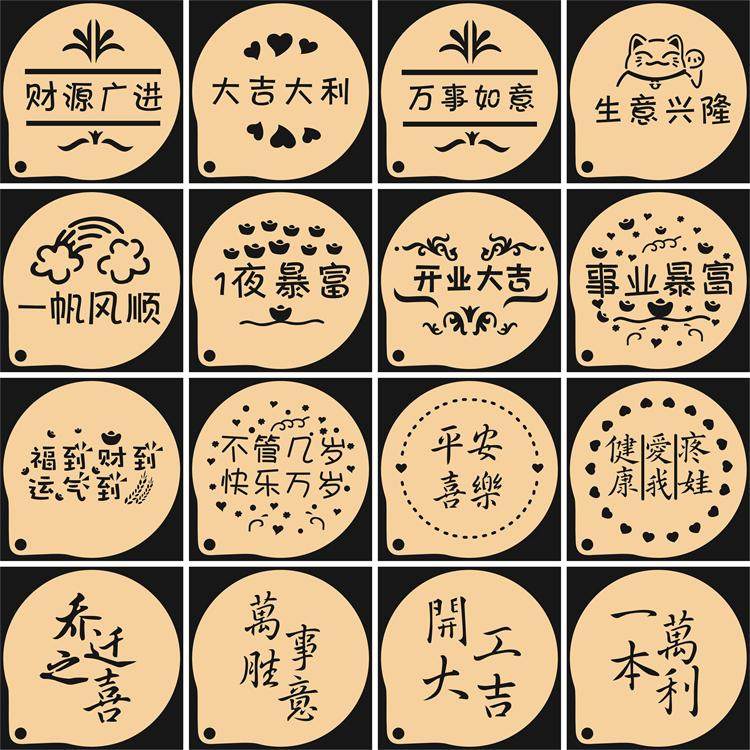 财源广进
大吉大利
万事如意
生意兴隆
一帆风顺
1夜暴富
开业大吉
事业暴富
福到财到
运气到
不管几岁
快乐万岁
平安
喜樂
健康
愛我
疼娃
乔迁
之喜
萬事
胜意
開工
大吉
一本
萬利